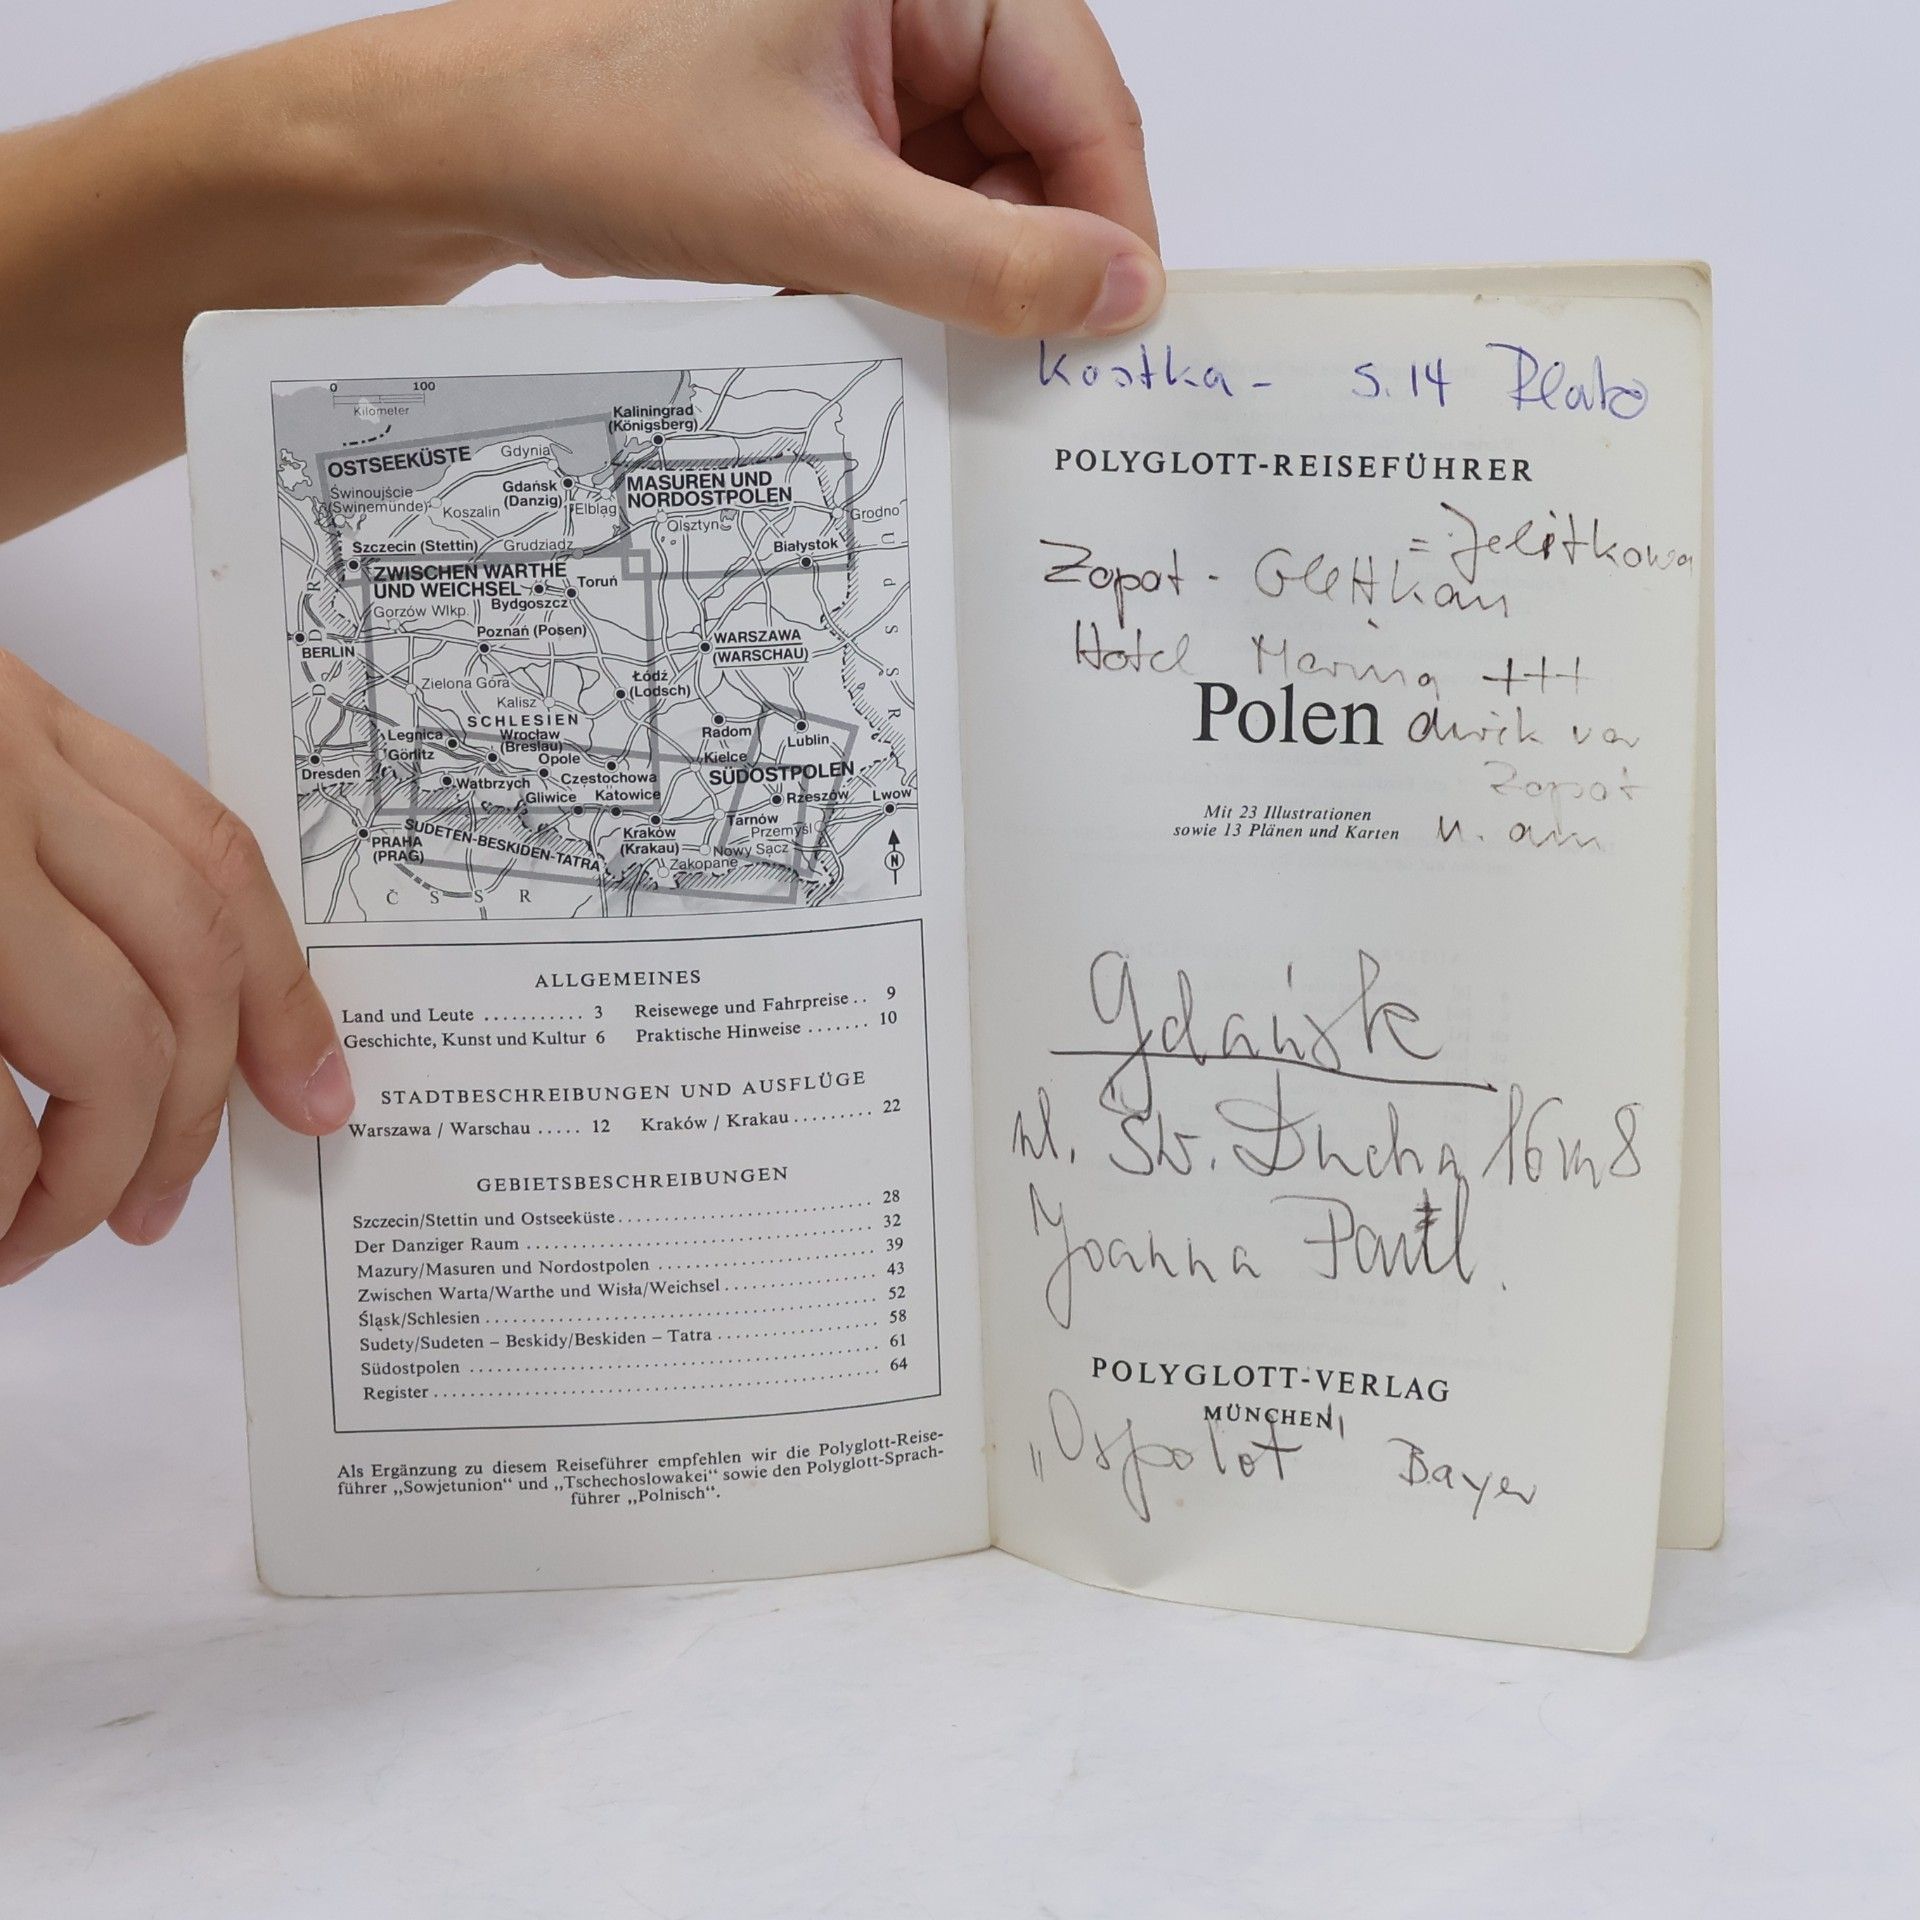 0 100
Kilometer
Kaliningrad
(Königsberg)
OSTSEEKÜSTE
Gdynia
Gdańsk
(Danzig)
Elbląg
MASUREN UND
NORDOSTPOLEN
Świnoujście
(Swinemünde)
Koszalin
Olsztyn
Grodno
Szczecin (Stettin)
Grudziadz
Białystok
ZWISCHEN WARTHE
UND WEICHSEL
Toruń
Bydgoszcz
Gorzów Wlkp.
Poznań (Posen)
WARSZAWA
(WARSCHAU)
BERLIN
D D R
U d S S R
Zielona Góra
Łódź
(Lodsch)
Kalisz
SCHLESIEN
Legnica
Wrocław
(Breslau)
Radom
Lublin
Görlitz
Opole
Kielce
Dresden
Watbrzych
Częstochowa
SÜDOSTPOLEN
Gliwice
Katowice
Rzeszów
Lwow
Tarnów
SUDETEN-BESKIDEN-TATRA
Kraków
(Krakau)
Przemyśl
PRAHA
(PRAG)
Nowy Sącz
Zakopane
N
Č S S R
ALLGEMEINES
Land und Leute ........... 3 Reisewege und Fahrpreise .. 9
Geschichte, Kunst und Kultur 6 Praktische Hinweise ....... 10
STADTBESCHREIBUNGEN UND AUSFLÜGE
Warszawa / Warschau ..... 12 Kraków / Krakau ......... 22
GEBIETSBESCHREIBUNGEN
Szczecin/Stettin und Ostseeküste ........ 28
Der Danziger Raum ........ 32
Mazury/Masuren und Nordostpolen ........ 39
Zwischen Warta/Warthe und Wisła/Weichsel ........ 43
Śląsk/Schlesien ........ 52
Sudety/Sudeten – Beskidy/Beskiden – Tatra ........ 58
Südostpolen ........ 61
Register ........ 64
Als Ergänzung zu diesem Reiseführer empfehlen wir die Polyglott-Reise-
führer „Sowjetunion“ und „Tschechoslowakei“ sowie den Polyglott-Sprach-
führer „Polnisch“.
Kostka - S. 14 Plato
POLYGLOTT-REISEFÜHRER
= Jelitkowa
Zopot - Glettkau
Hotel Marina +++
Polen
vor
Zopot
Mit 23 Illustrationen
sowie 13 Plänen und Karten
u. am
Gdańsk
ul. Św. Ducha 16 m 8
Joanna
POLYGLOTT-VERLAG
MÜNCHEN
„Ospolot“ Bayer